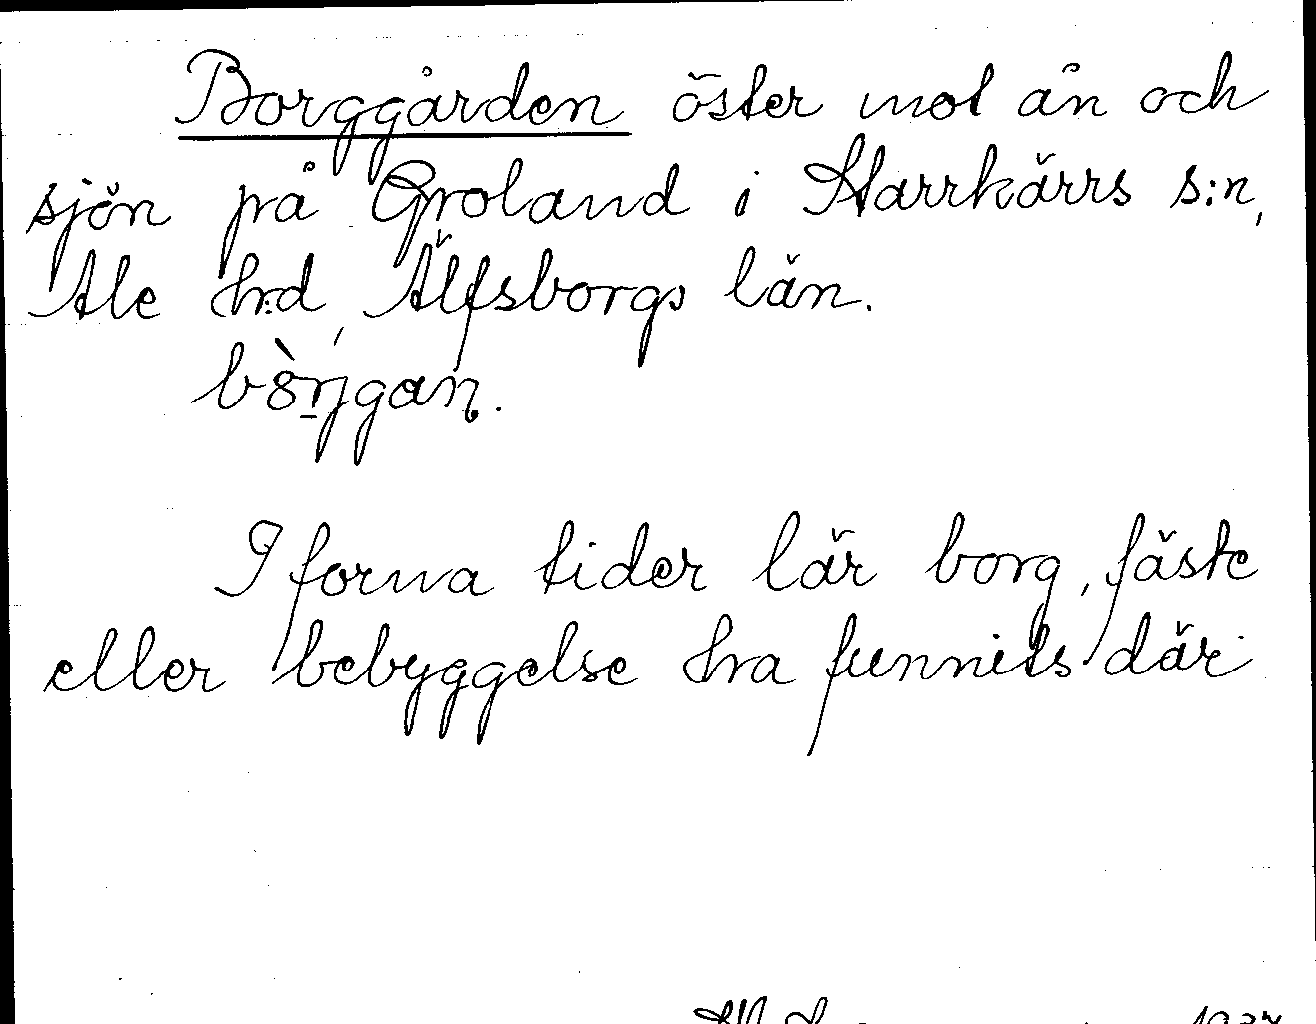 Borggården öster mot ån och
sjön på Groland i Starrkärrs s:n,
Ale h:d, Älfsborgs län.
I forna tider lär borg, fäste
eller bebyggelse ha funnits där